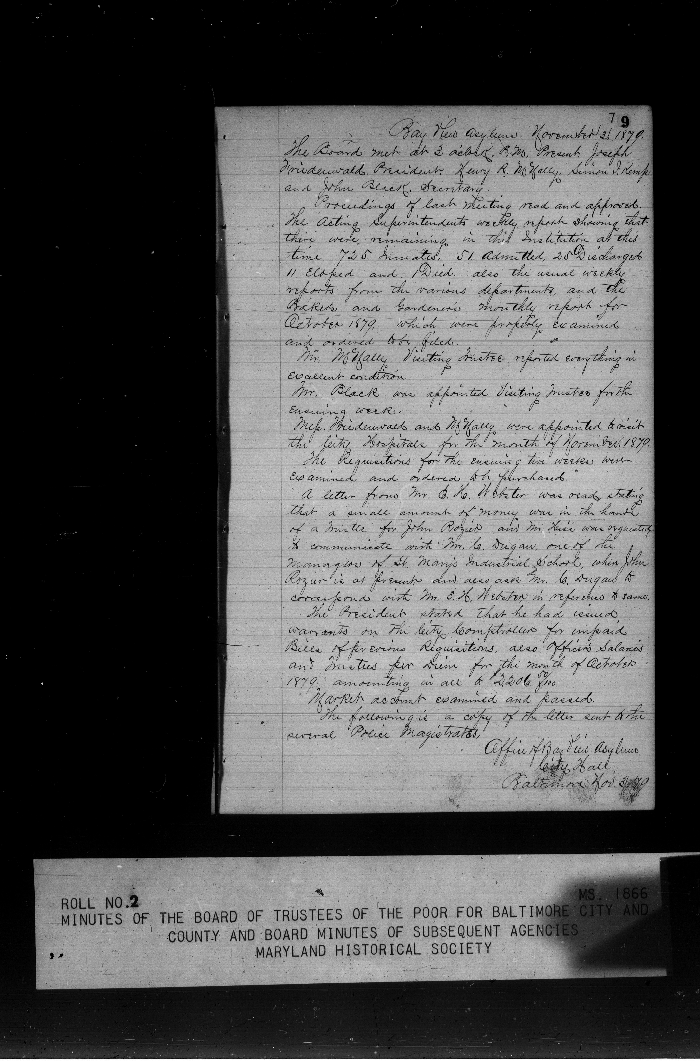 79
Bay View Asylum November 3, 1879.
The Board met at 2 oclock P.M. Present Joseph
Friedenwald President, Henry R. McNally, Simon J. Kemp
and John Black Secretary
Proceedings of last meeting read and approved.
The Acting Superintendents weekly report showing that
there were remaining in this Institution at this
time 725 Inmates, 51 Admitted 28 Discharged
11 Eloped and 1 Died. also the usual weekly
reports from the various departments, and the
Bakers and Gardeners monthly report for
October 1879, which were properly examined
and ordered to be filed.
Mr. McNally Visiting Trustee reported everything in
excellent condition
Mr. Black was appointed Visiting Trustee for the
ensuing week.
Mess. Friedenwald and McNally were appointed to visit
the City Hospitals for the month of November 1879.
The Requisitions for the ensuing two weeks were
examined and ordered to be purchased
A letter from Mr. E. H. Webster was read, stating
that a small amount of money was in the hands
of a trustee for John Rozier and Mr. was requested
to communicate with Mr. C. Dugan one of the
managers of St. Mary's Industrial School, where John
Rozier is at present and also ask Mr. C. Dugan to
correspond with Mr. E. H. Webster in reference to same.
The President stated that he had issued
warrants on the City Comptroller for unpaid
Bills of previous Requisitions, also Officers Salaries
and Trustees per Diem for the month of October
1879, amounting in all to 2206
Market account examined and passed.
The following is a copy of the letter sent to the
several Police Magistrates
Office of Bay View Asylum
City Hall
Baltimore Nov. 3, 1879
ROLL NO.2 MS. 1866
MINUTES OF THE BOARD OF TRUSTEES OF THE POOR FOR BALTIMORE CITY AND
COUNTY AND BOARD MINUTES OF SUBSEQUENT AGENCIES
MARYLAND HISTORICAL SOCIETY